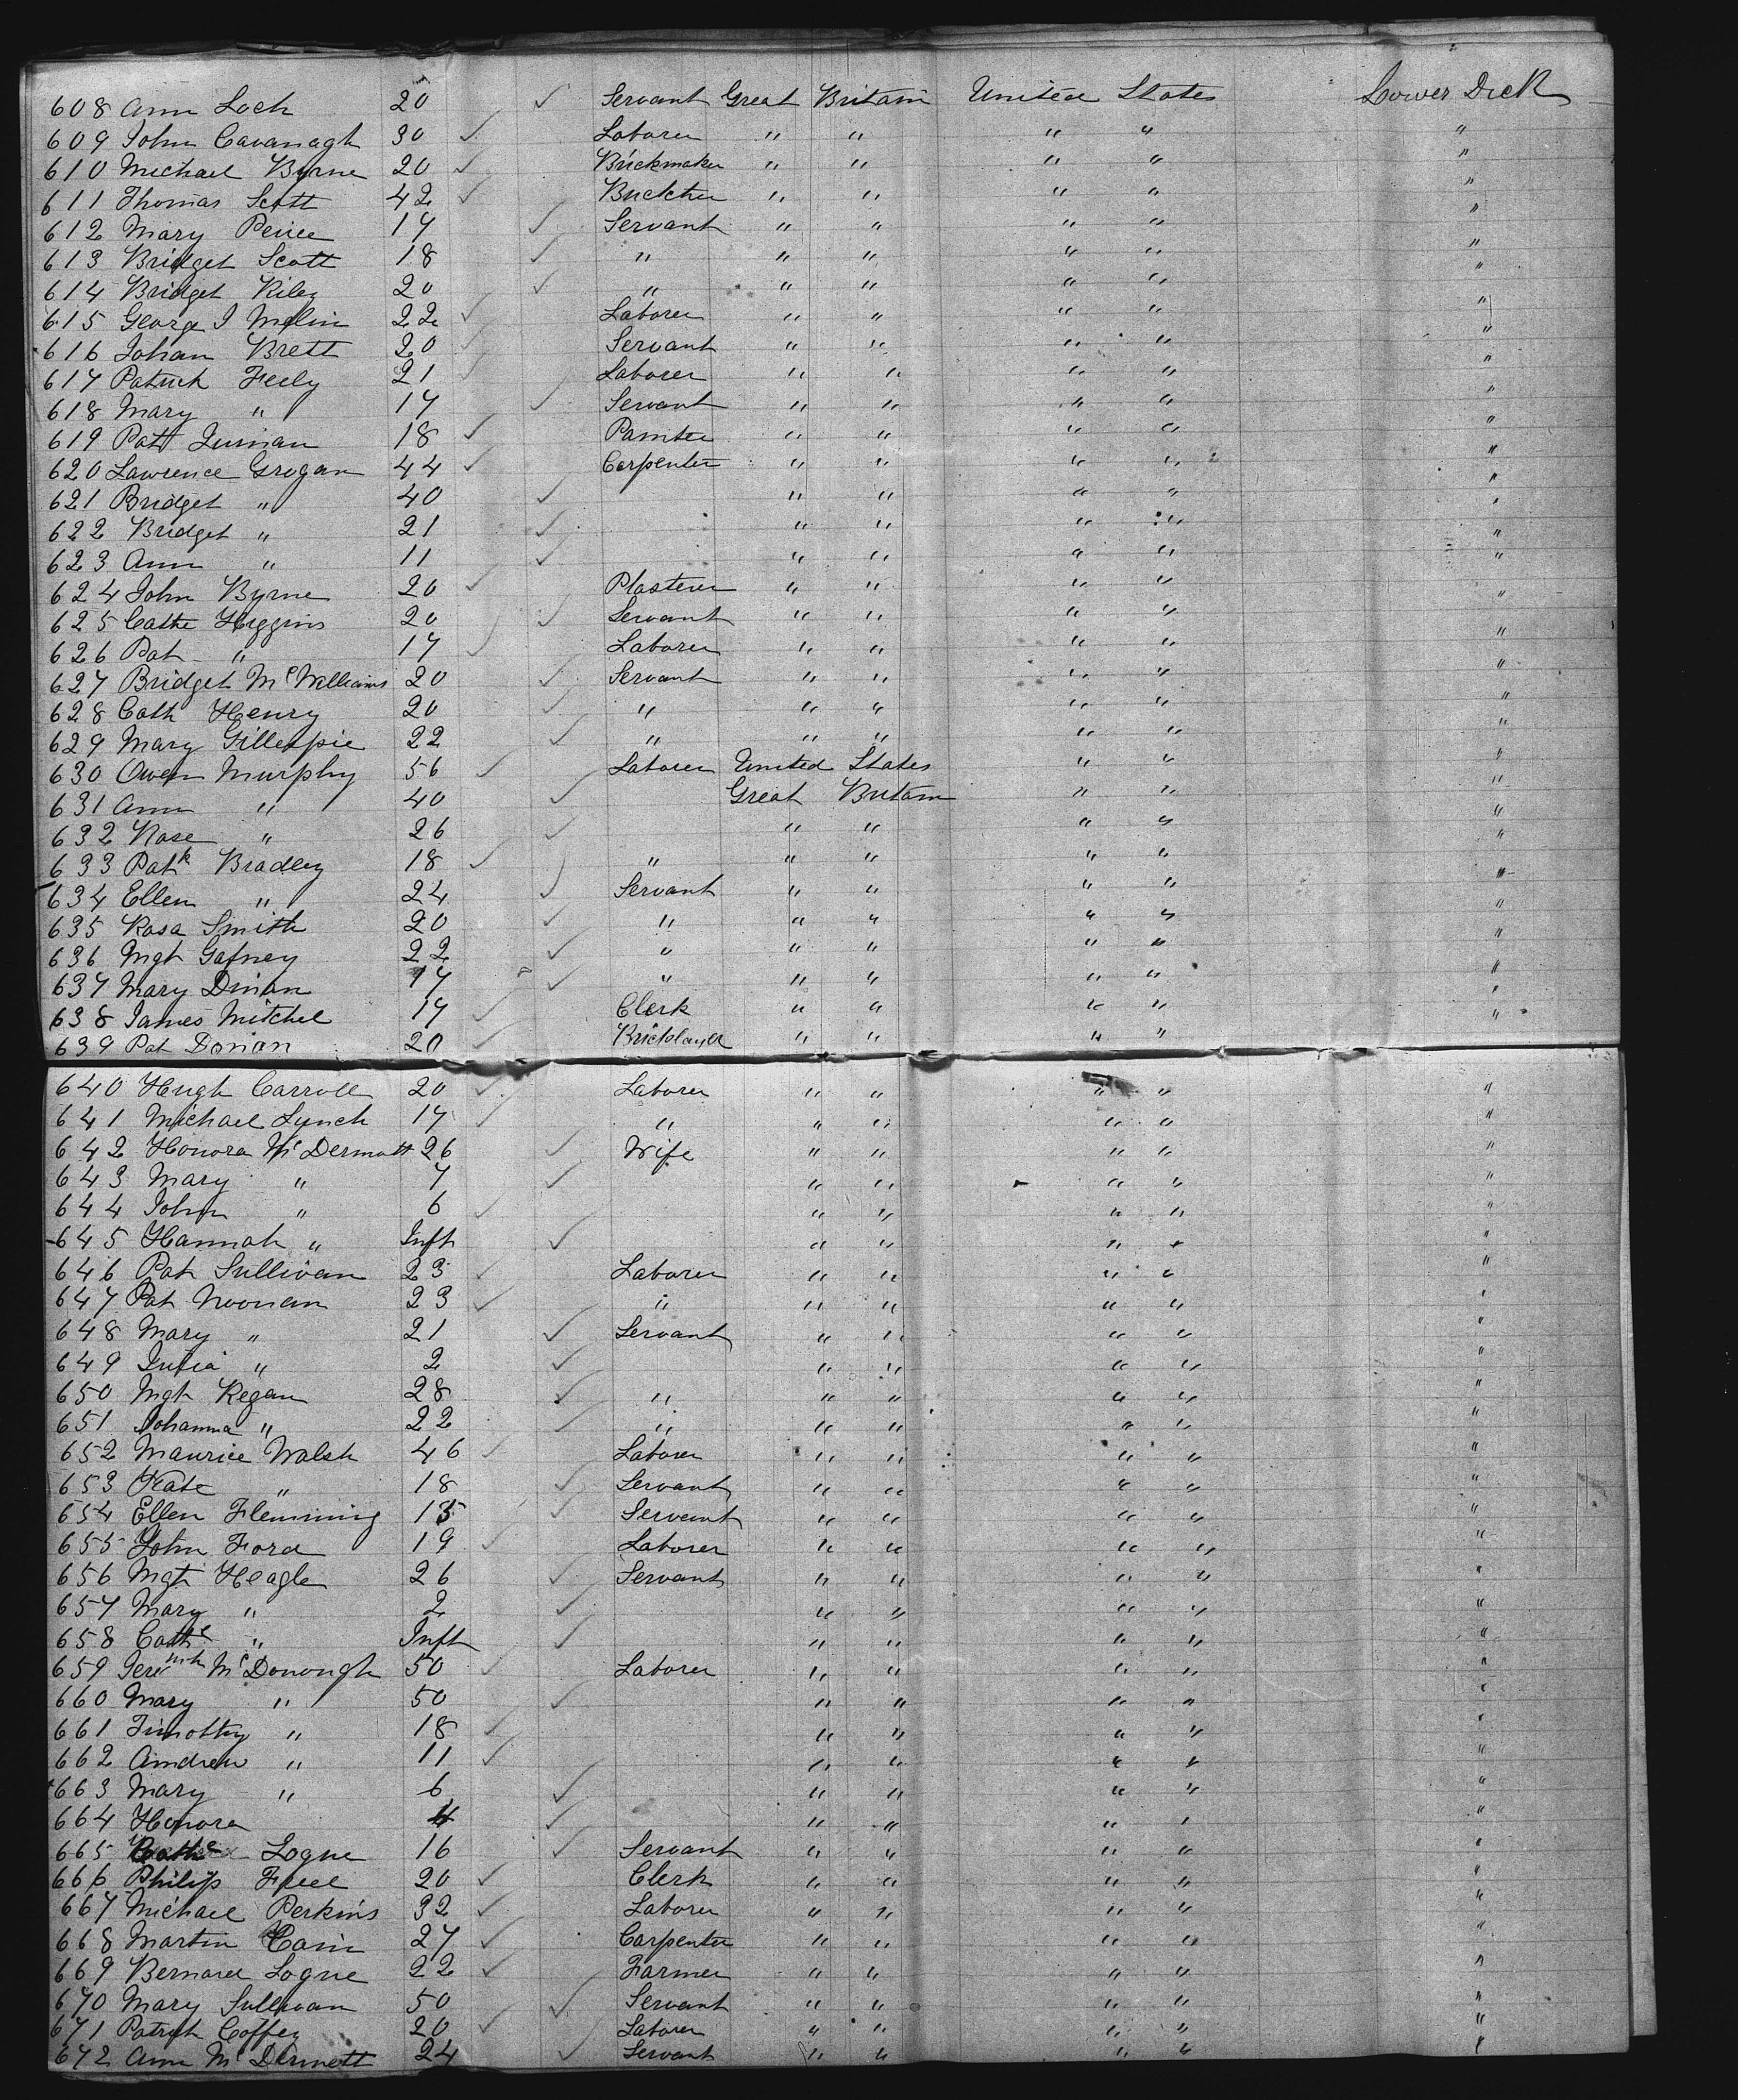 608 Ann Loch 20 ✓ Servant Great Britain United States Lower Deck
609 John Cavanagh 30 ✓ Laborer " " " " "
610 Michael Byrne 20 ✓ Brickmaker " " " " "
611 Thomas Scott 42 ✓ Butcher " " " " "
612 Mary 17 ✓ Servant " " " " "
613 Bridget Scott 18 ✓ " " " " " "
614 Bridget Riley 20 ✓ " " " " " "
615 George J 22 ✓ Laborer " " " " "
616 Johan Brett 20 ✓ Servant " " " " "
617 Patrick Feely 21 ✓ Laborer " " " " "
618 Mary " 17 ✓ Servant " " " " "
619 Patt 18 ✓ Painter " " " " "
620 Lawrence Grogan 44 ✓ Carpenter " " " " "
621 Bridget " 40 ✓ " " " " "
622 Bridget " 21 ✓ " " " " "
623 Ann " 11 ✓ " " " " "
624 John Byrne 20 ✓ Plasterer " " " " "
625 Cathe Higgins 20 ✓ Servant " " " " "
626 Pat " 17 ✓ Laborer " " " " "
627 Bridget McWilliams 20 ✓ Servant " " " " "
628 Cath Henry 20 ✓ " " " " " "
629 Mary Gillespie 22 ✓ " " " " " "
630 Owen Murphy 56 ✓ Laborer United States " " "
631 Ann " 40 ✓ Great Britain " " "
632 Rose " 26 ✓ " " " " "
633 Patk Bradley 18 ✓ " " " " " "
634 Ellen " 24 ✓ Servant " " " " "
635 Rosa Smith 20 ✓ " " " " " "
636 Mgt Gafney 22 ✓ " " " " " "
637 Mary Dinan 17 ✓ " " " " " "
638 James Mitchel 17 ✓ Clerk " " " " "
639 Pat Dorian 20 ✓ Bricklayer " " " " "
640 Hugh Carroll 20 ✓ Laborer " " " " "
641 Michael Lynch 17 ✓ " " " " " "
642 Honora McDermott 26 ✓ Wife " " " " "
643 Mary " 7 ✓ " " " " "
644 John " 6 ✓ " " " " "
645 Hannah " Inft ✓ " " " " "
646 Pat Sullivan 23 ✓ Laborer " " " " "
647 Pat Noonan 23 ✓ " " " " " "
648 Mary " 21 ✓ Servant " " " " "
649 Julia " 2 ✓ " " " " "
650 Mgt Regan 28 ✓ " " " " " "
651 Johanna " 22 ✓ " " " " " "
652 Maurice Walsh 46 ✓ Laborer " " " " "
653 Kate " 18 ✓ Servant " " " " "
654 Ellen Flemming 15 ✓ Servant " " " " "
655 John Ford 19 ✓ Laborer " " " " "
656 Mgt Heagle 26 ✓ Servant " " " " "
657 Mary " 2 ✓ " " " " "
658 Cathe " Inft ✓ " " " " "
659 Jeremh McDonough 50 ✓ Laborer " " " " "
660 Mary " 50 ✓ " " " " "
661 Timothy " 18 ✓ " " " " "
662 Andrew " 11 ✓ " " " " "
663 Mary " 6 ✓ " " " " "
664 Honora 4 ✓ " " " " "
665 Cathe Logue 16 ✓ Servant " " " " "
666 Philip Freel 20 ✓ Clerk " " " " "
667 Michael Perkins 32 ✓ Laborer " " " " "
668 Martin Cain 27 ✓ Carpenter " " " " "
669 Bernard Logue 22 ✓ Farmer " " " " "
670 Mary Sullivan 50 ✓ Servant " " " " "
671 Patrick Coffey 20 ✓ Laborer " " " " "
672 Ann McDermott 24 ✓ Servant " " " " "